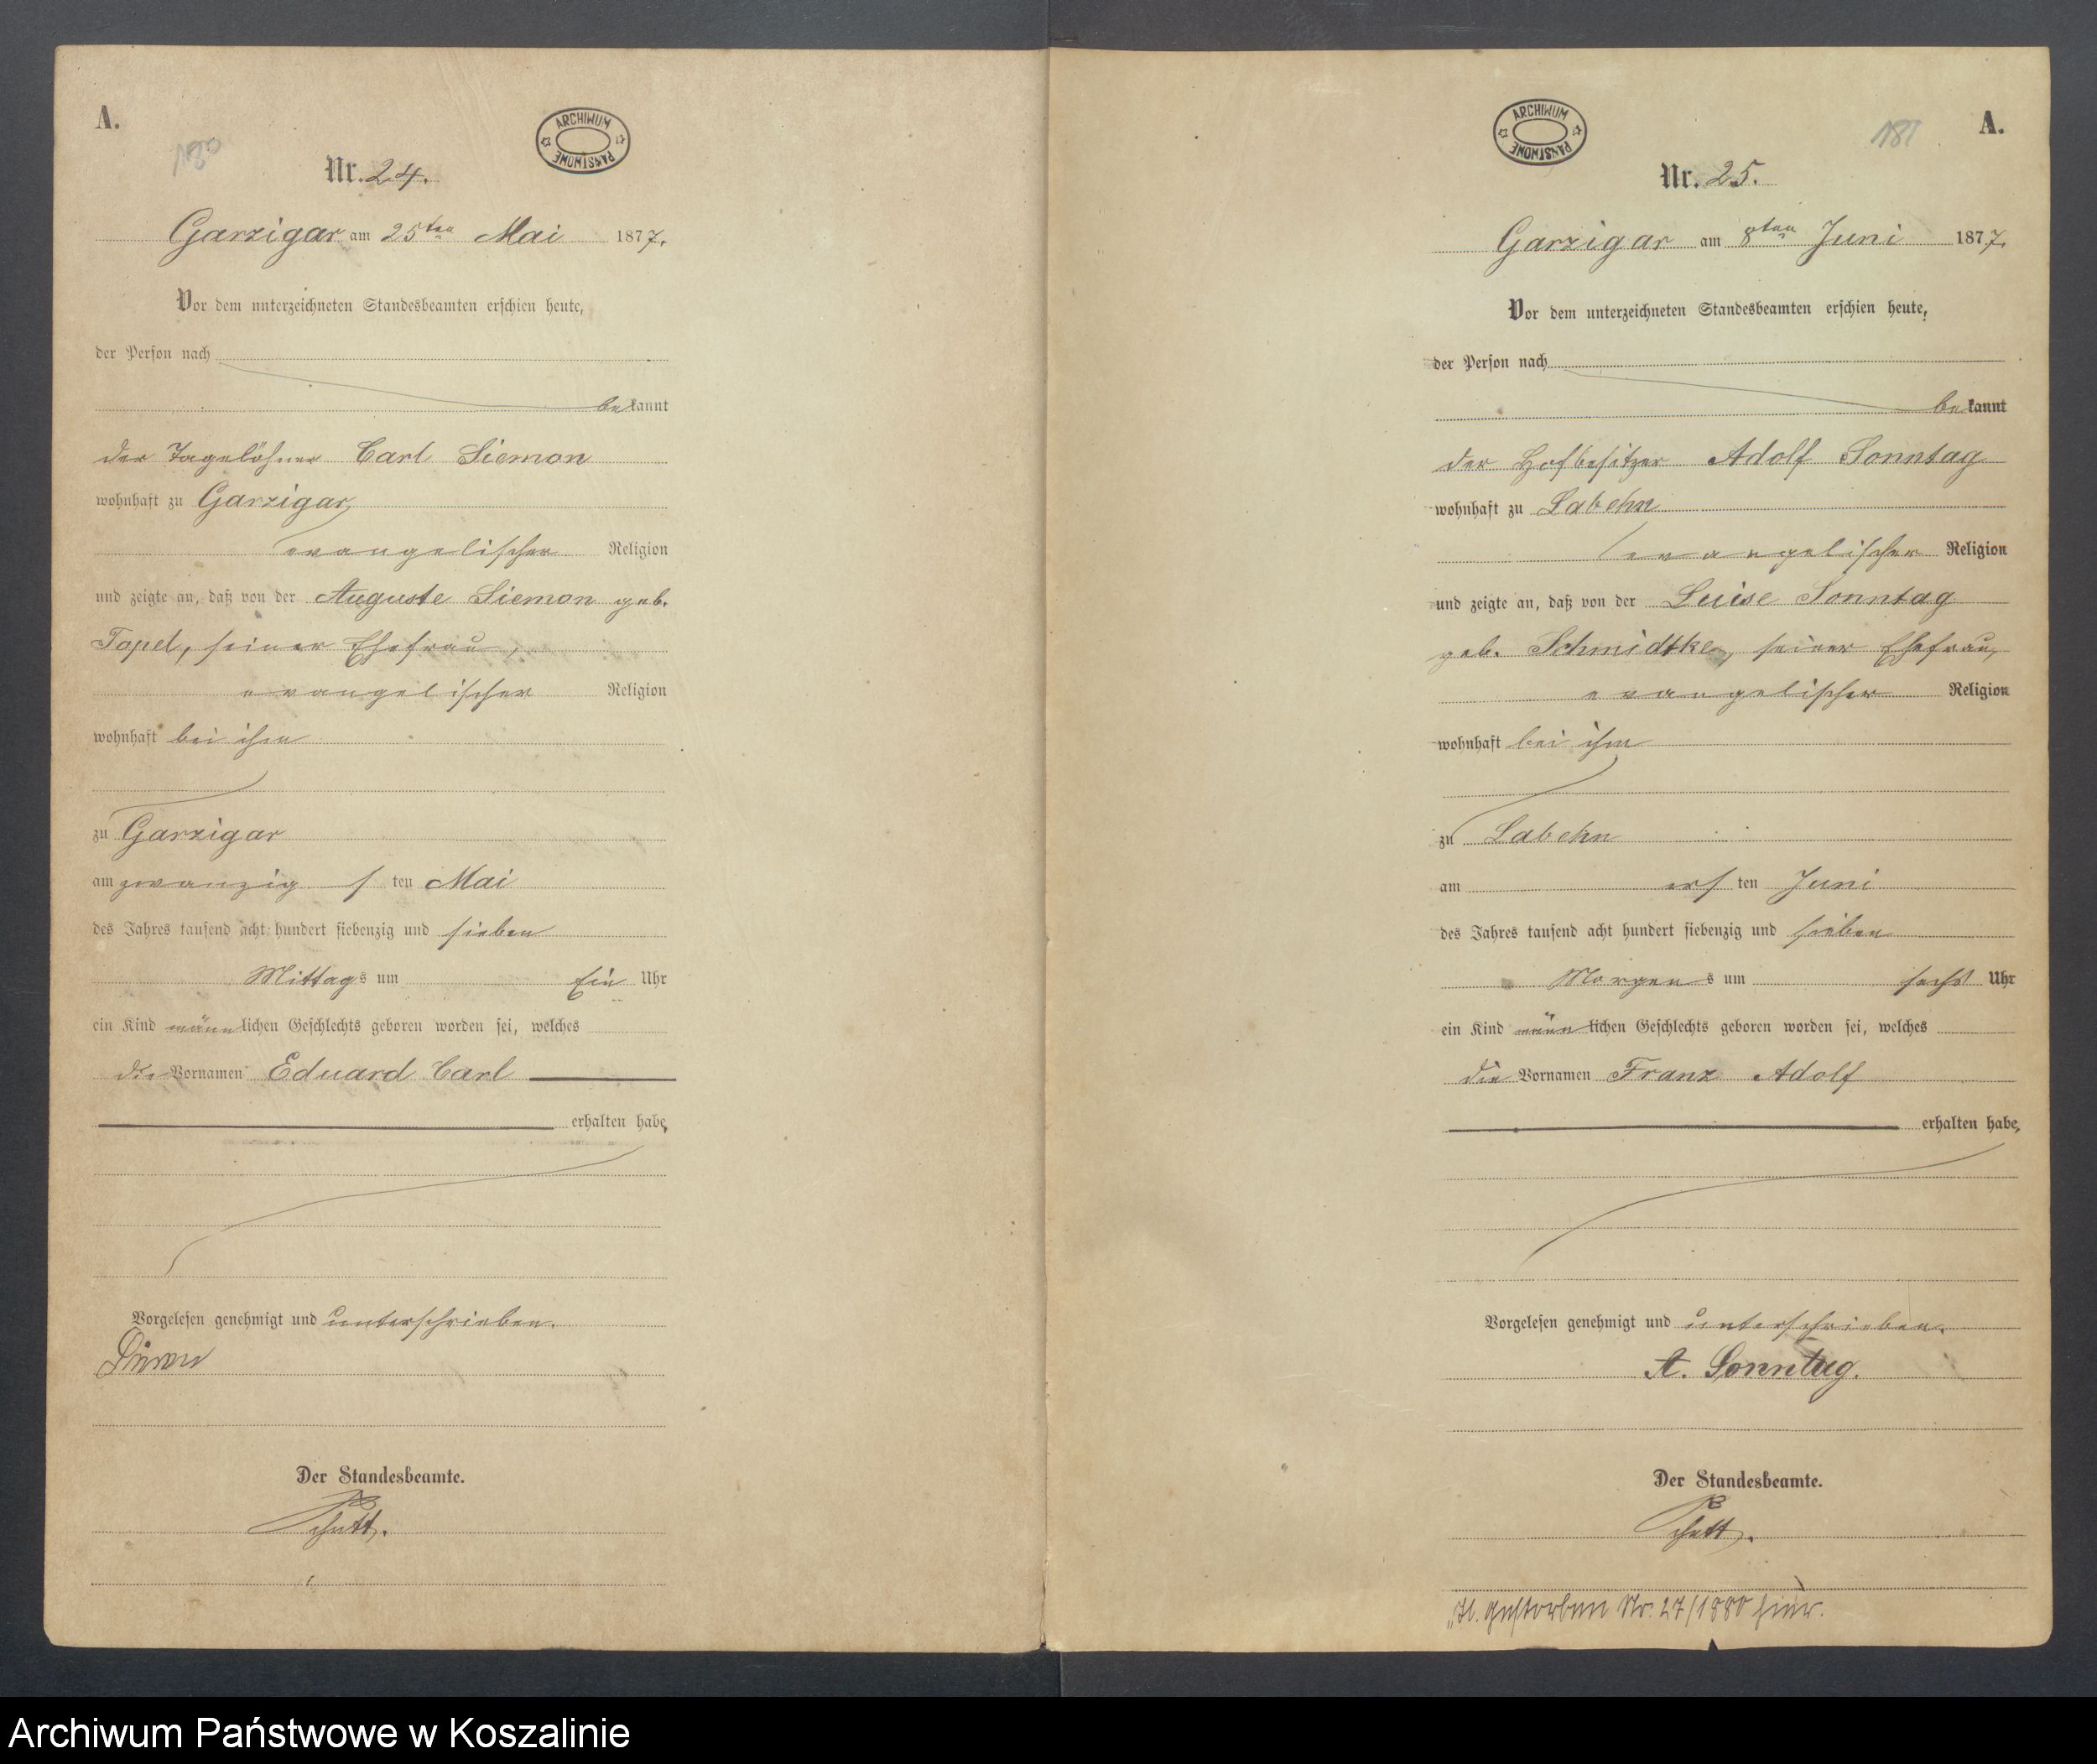 A.
180
ARCHIWUM PAŃSTWOWE
Nr. 24.
Garzigar am 25ten Mai 1877.
Vor dem unterzeichneten Standesbeamten erschien heute,
der Person nach
bekannt
der Tagelöhner Carl Siemon
wohnhaft zu Garzigar,
evangelischer Religion
und zeigte an, daß von der Auguste Siemon geb.
Topel, seiner Ehefrau,
evangelischer Religion
wohnhaft bei ihm
zu Garzigar
am zwanzigsten Mai
des Jahres tausend acht hundert siebenzig und sieben
Mittags um Ein Uhr
ein Kind männlichen Geschlechts geboren worden sei, welches
die Vornamen Eduard Carl
erhalten habe,
Vorgelesen genehmigt und unterschrieben.
Der Standesbeamte.
A.
181
ARCHIWUM PAŃSTWOWE
Nr. 25.
Garzigar am 8ten Juni 1877.
Vor dem unterzeichneten Standesbeamten erschien heute,
der Person nach
bekannt
der Hofbesitzer Adolf Sonntag
wohnhaft zu Labehn
evangelischer Religion
und zeigte an, daß von der Luise Sonntag
geb. Schmidtke, seiner Ehefrau,
evangelischer Religion
wohnhaft bei ihm
zu Labehn
am ersten Juni
des Jahres tausend acht hundert siebenzig und sieben
Morgens um sechs Uhr
ein Kind männlichen Geschlechts geboren worden sei, welches
die Vornamen Franz Adolf
erhalten habe,
Vorgelesen genehmigt und unterschrieben.
A. Sonntag.
Der Standesbeamte.
gestorben Nr. 27/1880 hier.
Archiwum Państwowe w Koszalinie